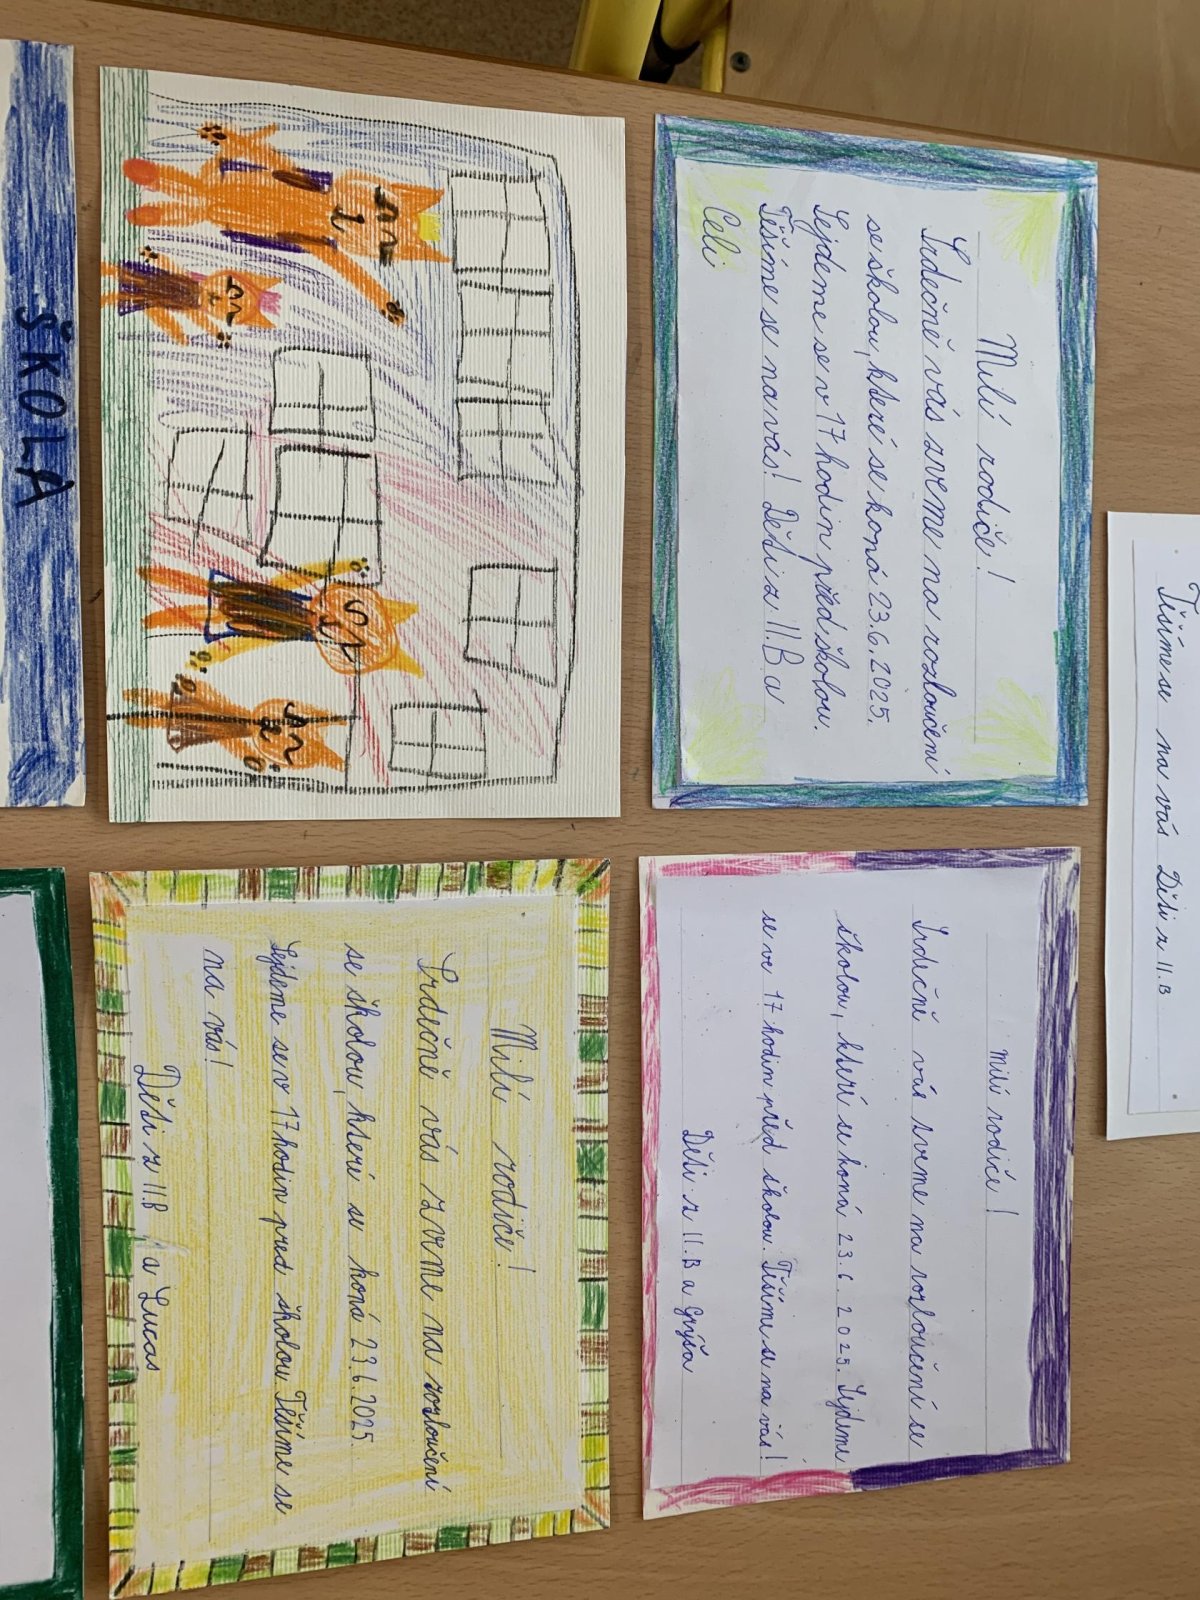 ŠKOLA
Milí rodiče!
Srdečně vás zveme na rozloučení
se školou, které se koná 23.6.2025.
Sejdeme se v 17 hodin před školou.
Těšíme se na vás! Děti z II.B a
Celi
Těšíme se na vás Děti z II.B
Milí rodiče!
Srdečně vás zveme na rozloučení
se školou, které se koná 23.6.2025.
Sejdeme se v 17 hodin před školou Těšíme se
na vás!
Děti z II.B a Lucas
milí rodiče!
Srdečně vás zveme na rozloučení se
školou, které se koná 23.6.2025. Sejdeme
se ve 17 hodin před školou. Těšíme se na vás!
Děti z II.B a Gríša